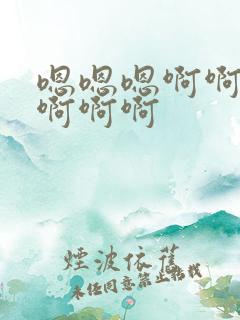 嗯嗯嗯啊啊
啊啊啊
煙波依舊
未任同意禁止转载